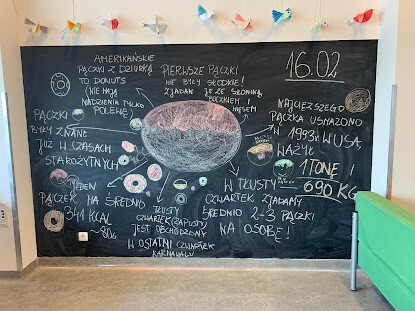 AMERYKAŃSKIE
PĄCZKI Z DZIURKĄ
TO DONUTS
(NIE MAJĄ
NADZIENIA TYLKO
POLEWĘ)
PIERWSZE PĄCZKI
NIE BYŁY SŁODKIE!
ZJADANO JE ZE SŁONINĄ,
BOCZKIEM I
MIĘSEM
16.02
NAJCIĘŻSZEGO
PĄCZKA USMAŻONO
W 1993r W USA,
WAŻYŁ
1 TONĘ I
690 KG
PĄCZKI
BYŁY ZNANE
JUŻ W CZASACH
STAROŻYTNYCH
JEDEN
PĄCZEK MA ŚREDNIO
344 KCAL
~80g
TŁUSTY
CZWARTEK (ZAPUSTY)
JEST OBCHODZONY
W OSTATNI CZWARTEK
KARNAWAŁU
W TŁUSTY
CZWARTEK ZJADAMY
ŚREDNIO 2-3 PĄCZKI
NA OSOBĘ!